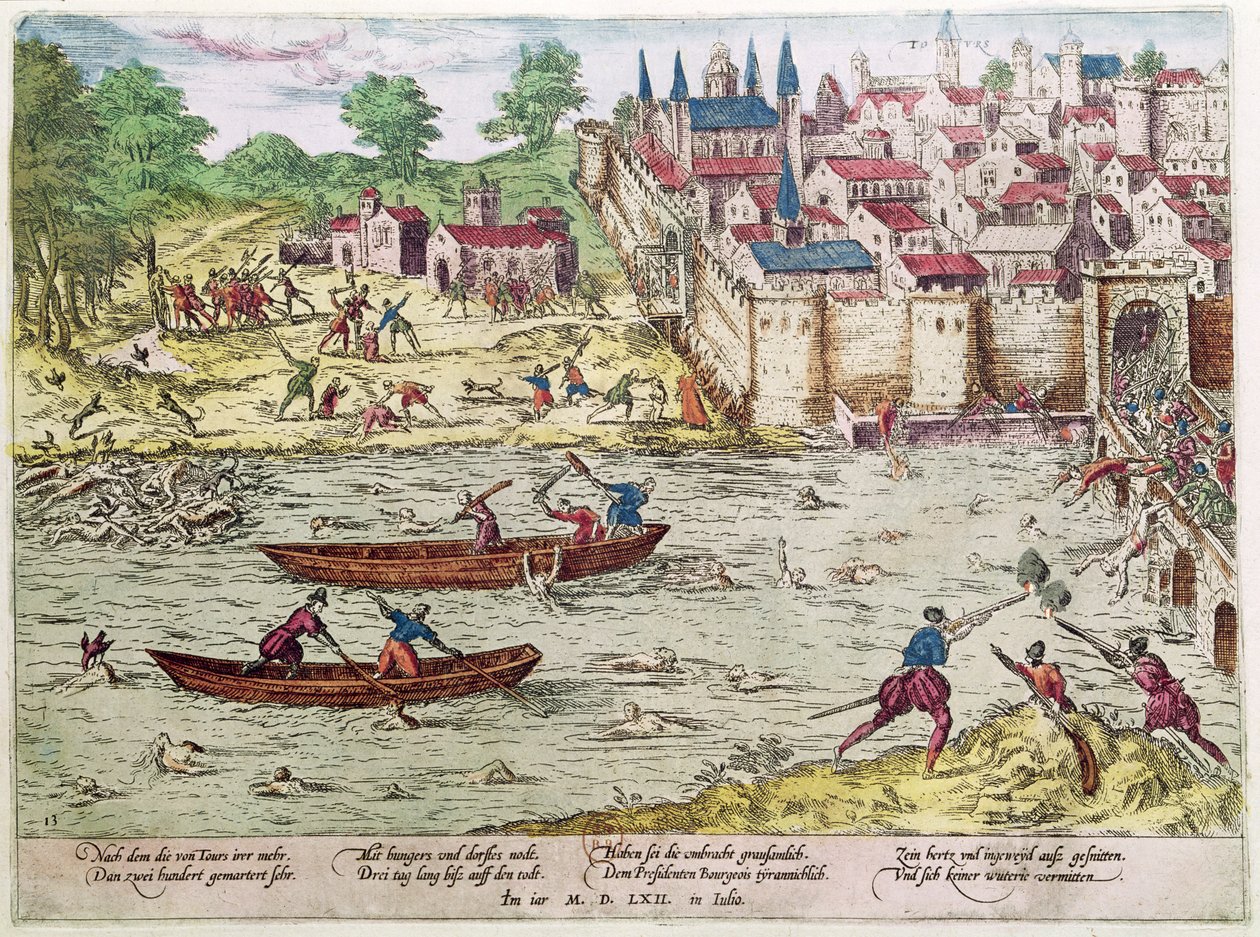 TOVRS
13
Nach dem die von Tours irer mehr.
Dan zwei hundert gemartert sehr.
Mit hungers vnd dorstes nodt.
Drei tag lang bisz auff den todt.
Haben sei die vmbracht grausamlich.
Dem Presidenten Bourgeois tÿrannichlich.
Zein hertz vnd ingeweÿd ausz gesnitten.
Vnd sich keiner wuterie vermitten.
Im iar M. D. LXII. in Iulio.